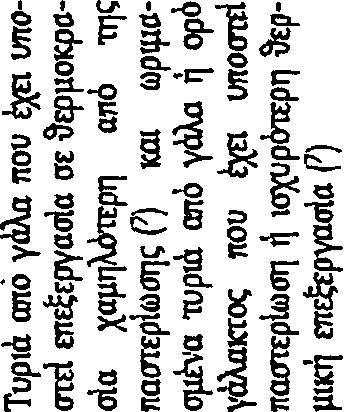 Τυριά από γάλα που έχει υπο-
στεί επεξεργασία σε θερμοκρα-
σία χαμηλότερη από της
παστερίωσης (²) και ωριμα-
σμένα τυριά από γάλα ή ορό
γάλακτος που έχει υποστεί
παστερίωση ή ισχυρότερη θερ-
μική επεξεργασία (²)